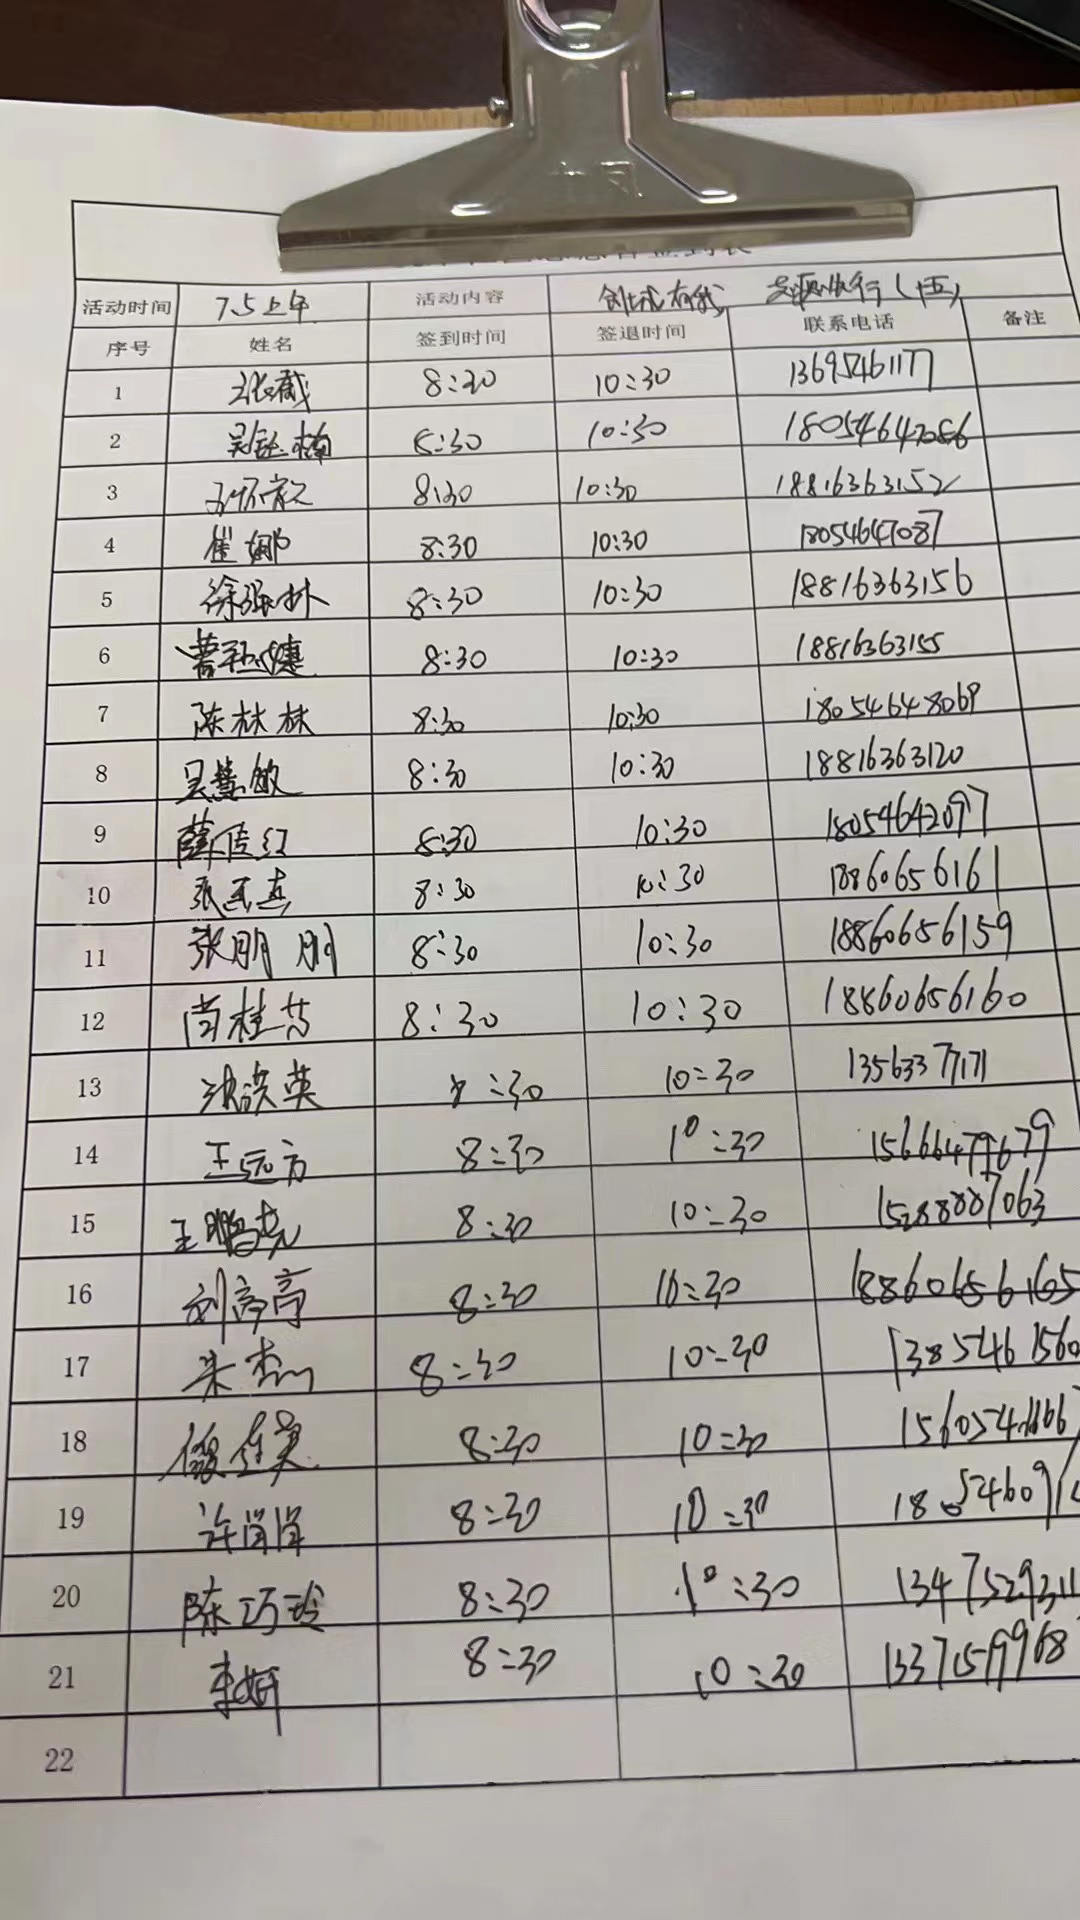 活动时间 7.5上午 活动内容 创城有我
序号 姓名 签到时间 签退时间 联系电话 备注
1 8:30 10:30 13695461177
2 8:30 10:30
3 8:30 10:30 18816363152
4 崔娜 8:30 10:30 18054647087
5 徐强林 8:30 10:30 18816363156
6 8:30 10:30 18816363155
7 陈林林 8:30 10:30 18054648069
8 吴慧敏 8:30 10:30 18816363120
9 薛传红 8:30 10:30 18054642097
10 8:30 10:30 18860656161
11 张朋朋 8:30 10:30 18860656159
12 尚桂芳 8:30 10:30 18860656160
13 洪英 10:30 13563377171
14 王远方 8:30 10:30 15666479679
15 王鹏尧 8:30 10:30 15288887063
16 刘高高 8:30 10:30 18860656165
17 朱杰 8:30 10:30 1385461560
18 8:30 10:30
19 许肖肖 8:30 10:30
20 陈巧玲 8:30 10:30 1347529311
21 8:30 10:30 13371599968
22